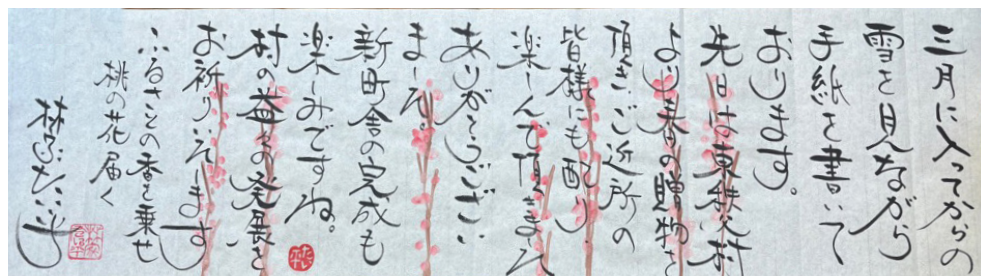 三月に入ってからの
雪を見ながら
手紙を書いて
おります。
先日は東秩父村
より春の贈物を
頂きご近所の
皆様にも配り、
楽しんで頂きまして
ありがとうござい
ました。
新町舎の完成も
楽しみですね。
村の益々の発展を
お祈りいたします
ふるさとの香を乗せ
桃の花届く